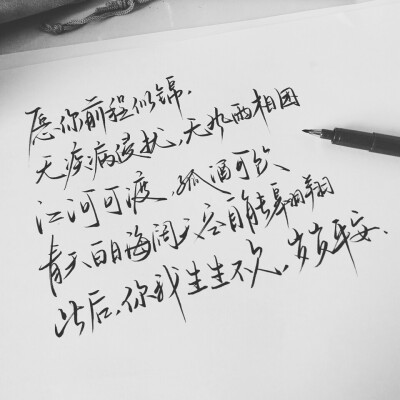 愿你前程似锦,
无疾病侵扰,无风雨相困
江河可渡,孤酒可饮
青天白日海阔天容自能翱翔
此后,你我生生不欠,岁岁平安.